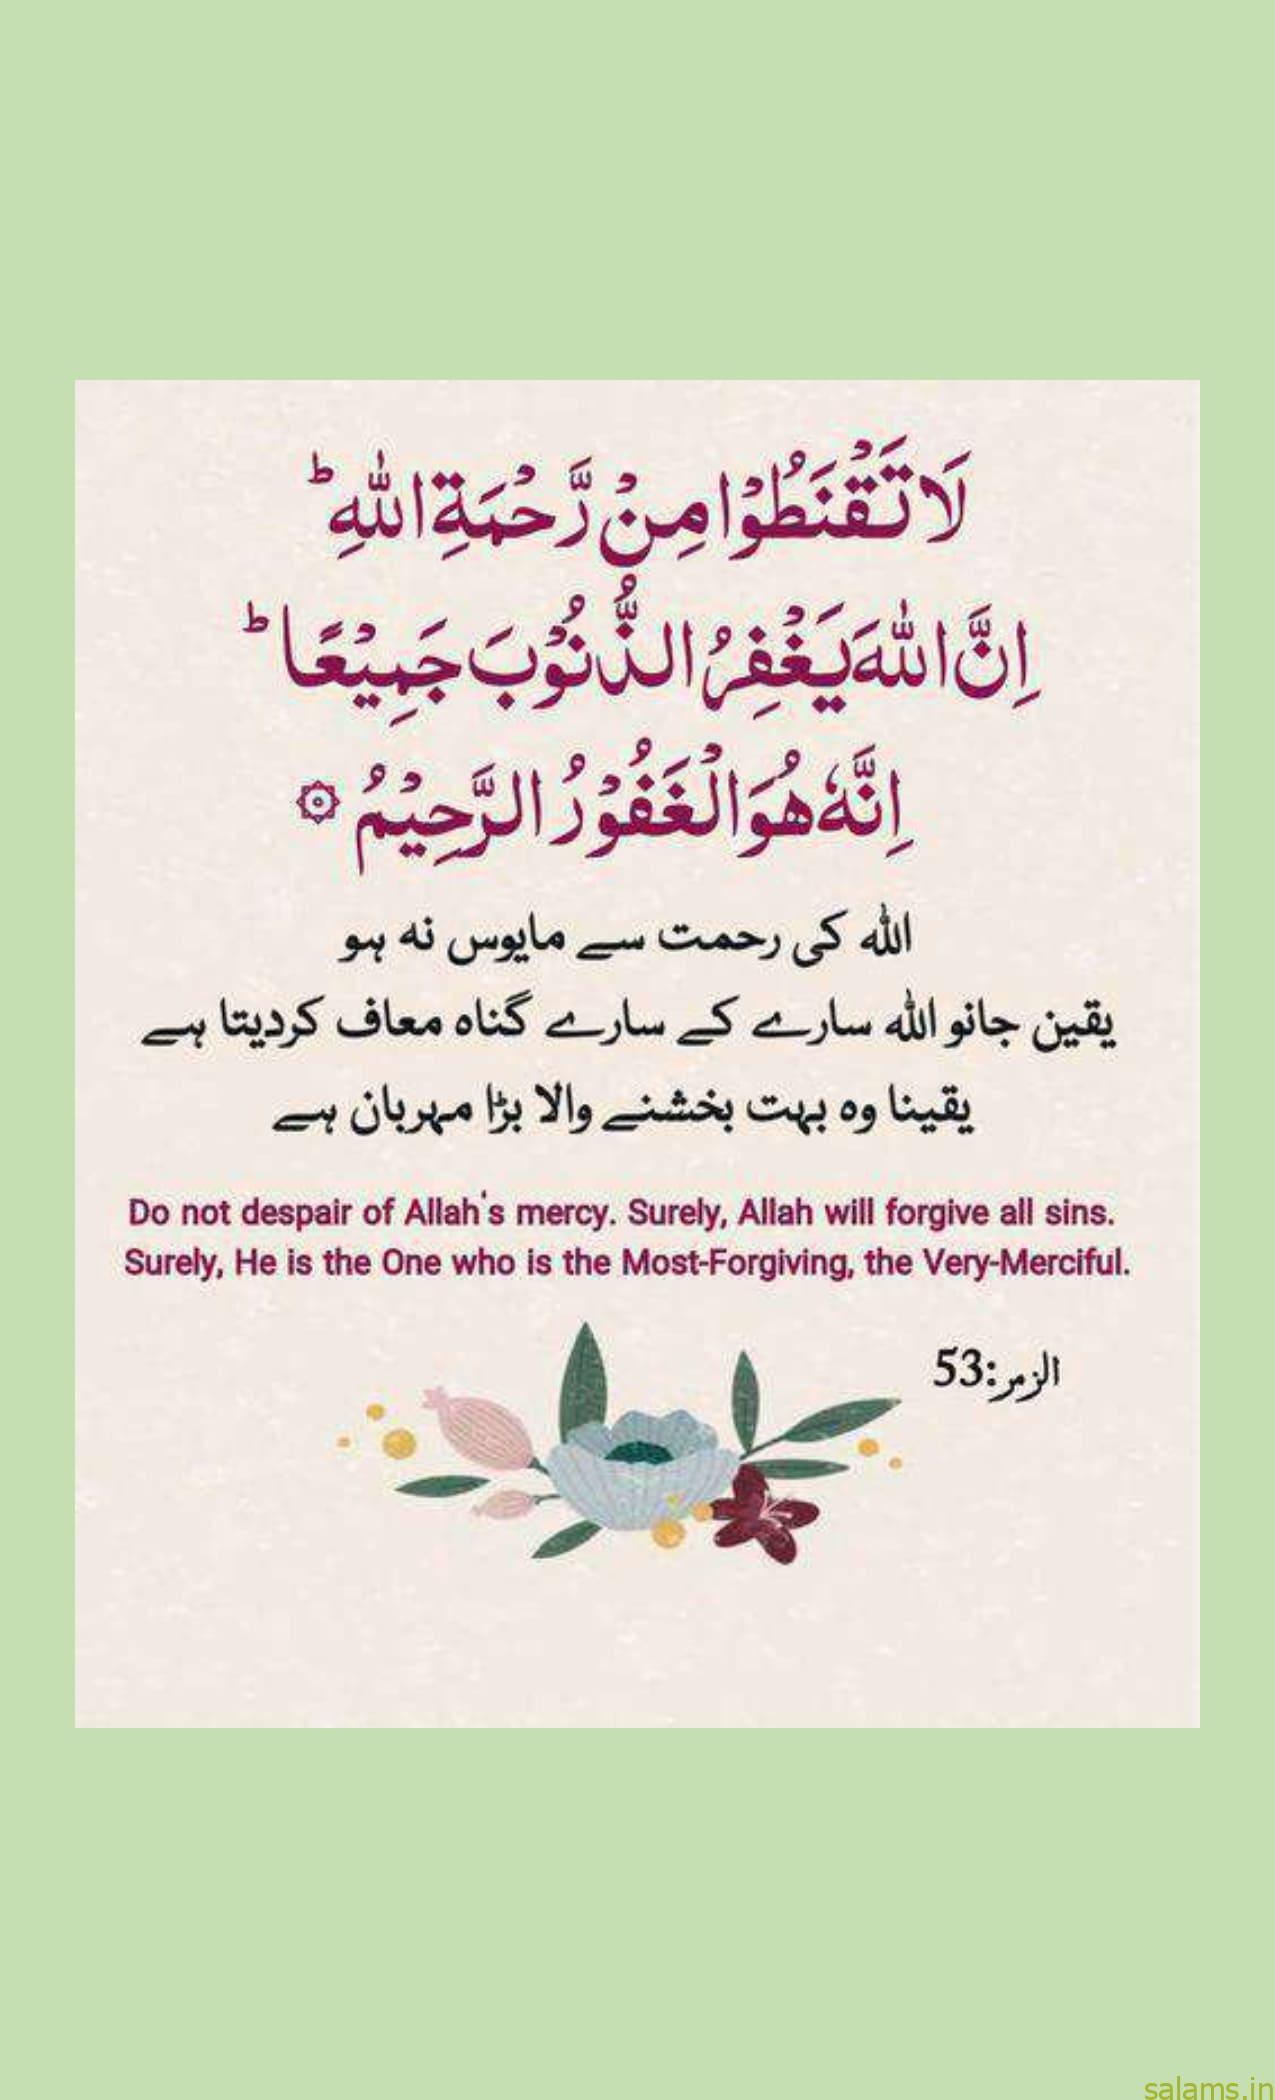 لَا تَقْنَطُوْا مِنْ رَّحْمَةِ اللّٰهِ ؕ
اِنَّ اللّٰهَ يَغْفِرُ الذُّنُوْبَ جَمِيْعًا ؕ
اِنَّهٗ هُوَ الْغَفُوْرُ الرَّحِيْمُ ۞
اللہ کی رحمت سے مایوس نہ ہو
یقین جانو اللہ سارے کے سارے گناہ معاف کردیتا ہے
یقینا وہ بہت بخشنے والا بڑا مہربان ہے
Do not despair of Allah's mercy. Surely, Allah will forgive all sins.
Surely, He is the One who is the Most-Forgiving, the Very-Merciful.
الزمر:53
salams.in